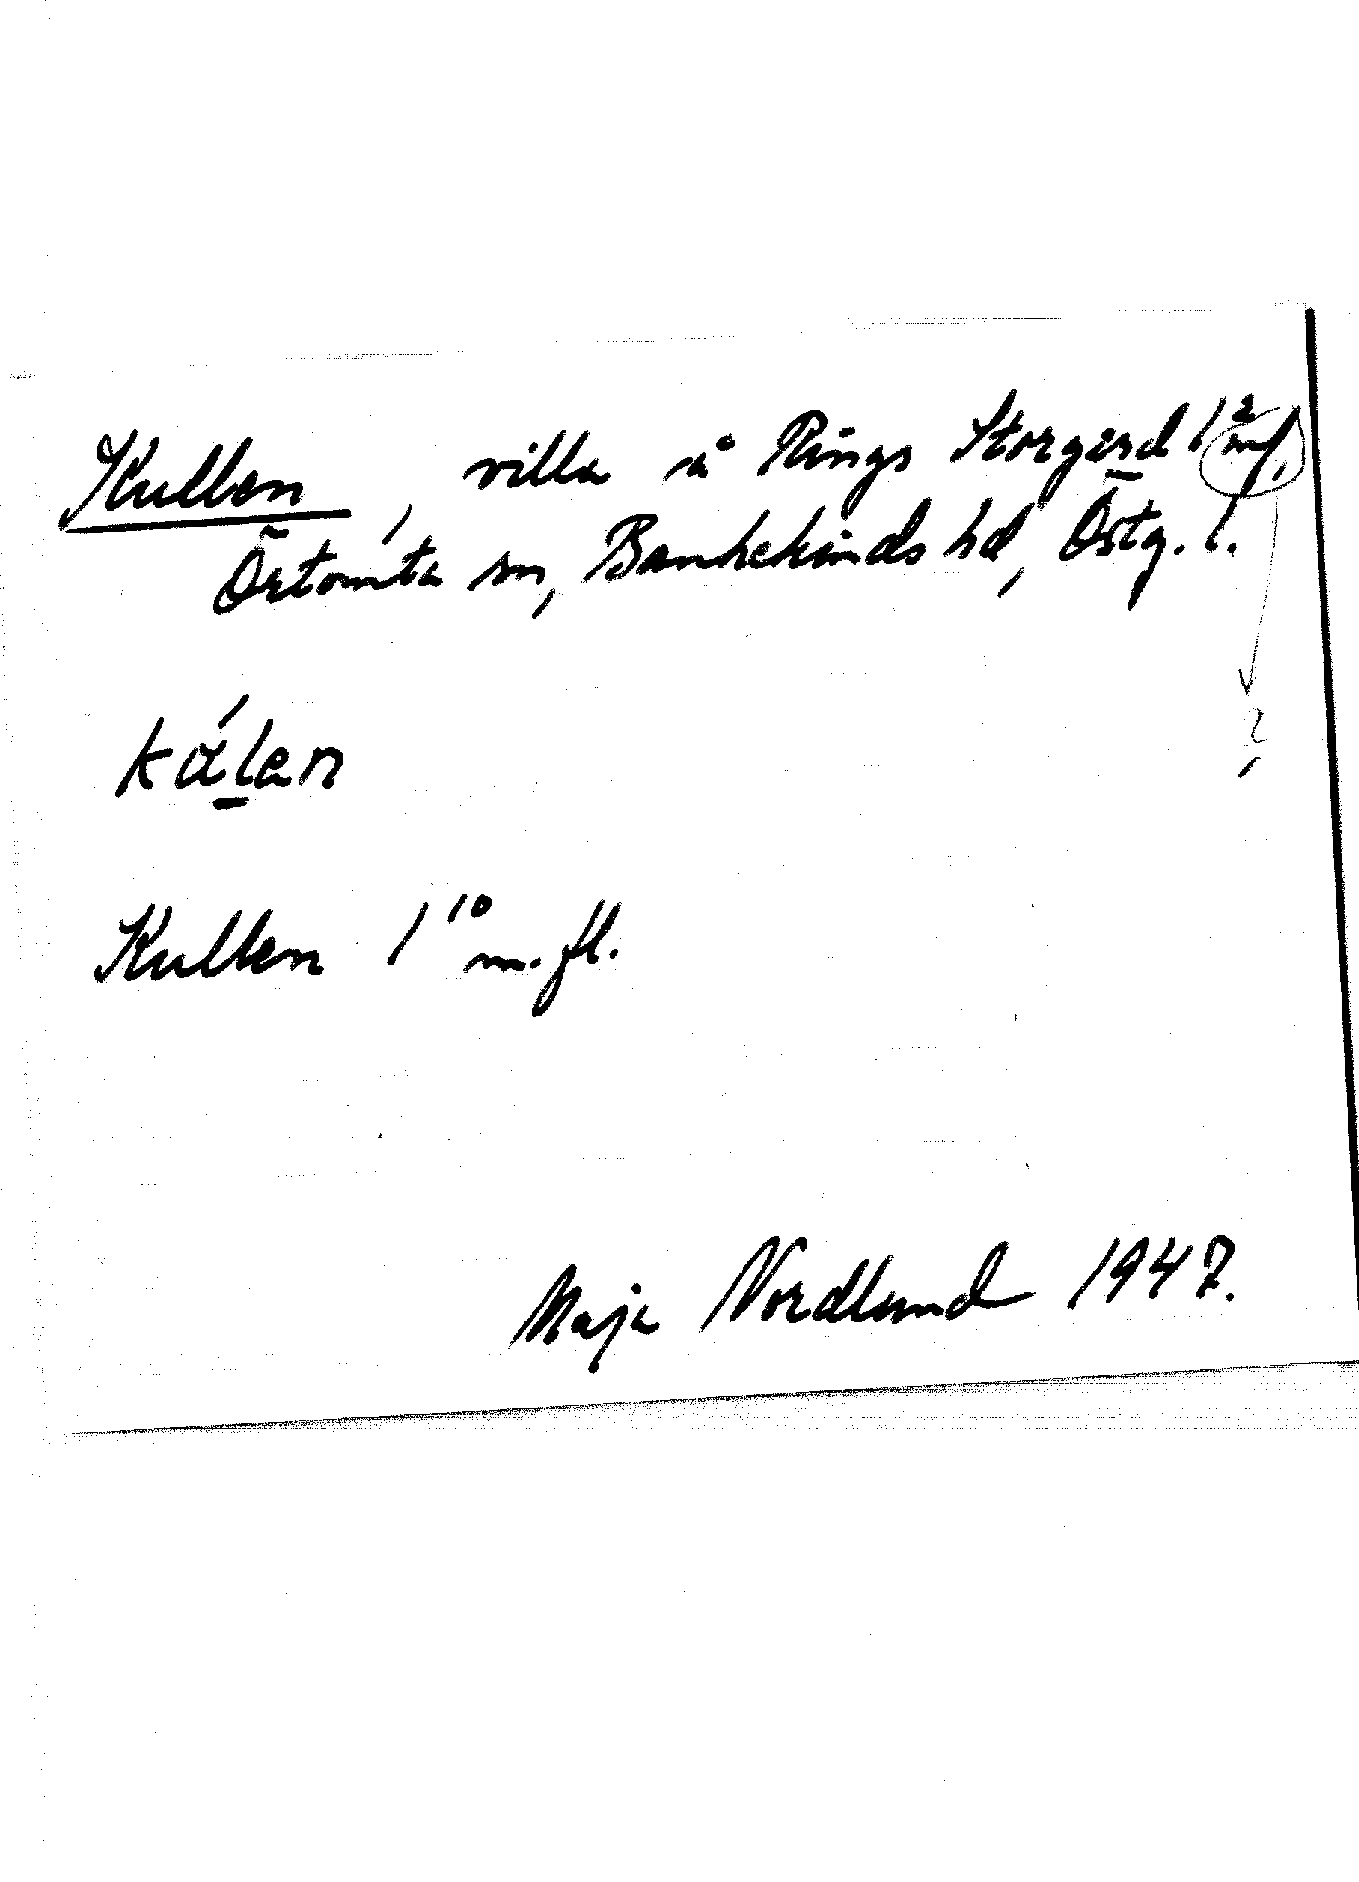 Kullen, villa å Rings Storgård 1² mfl.
Örtomta sn, Bankekinds hd, Östg. l.
?
kálen
Kullen 1¹⁰ m. fl.
Maja Nordlund 1947.